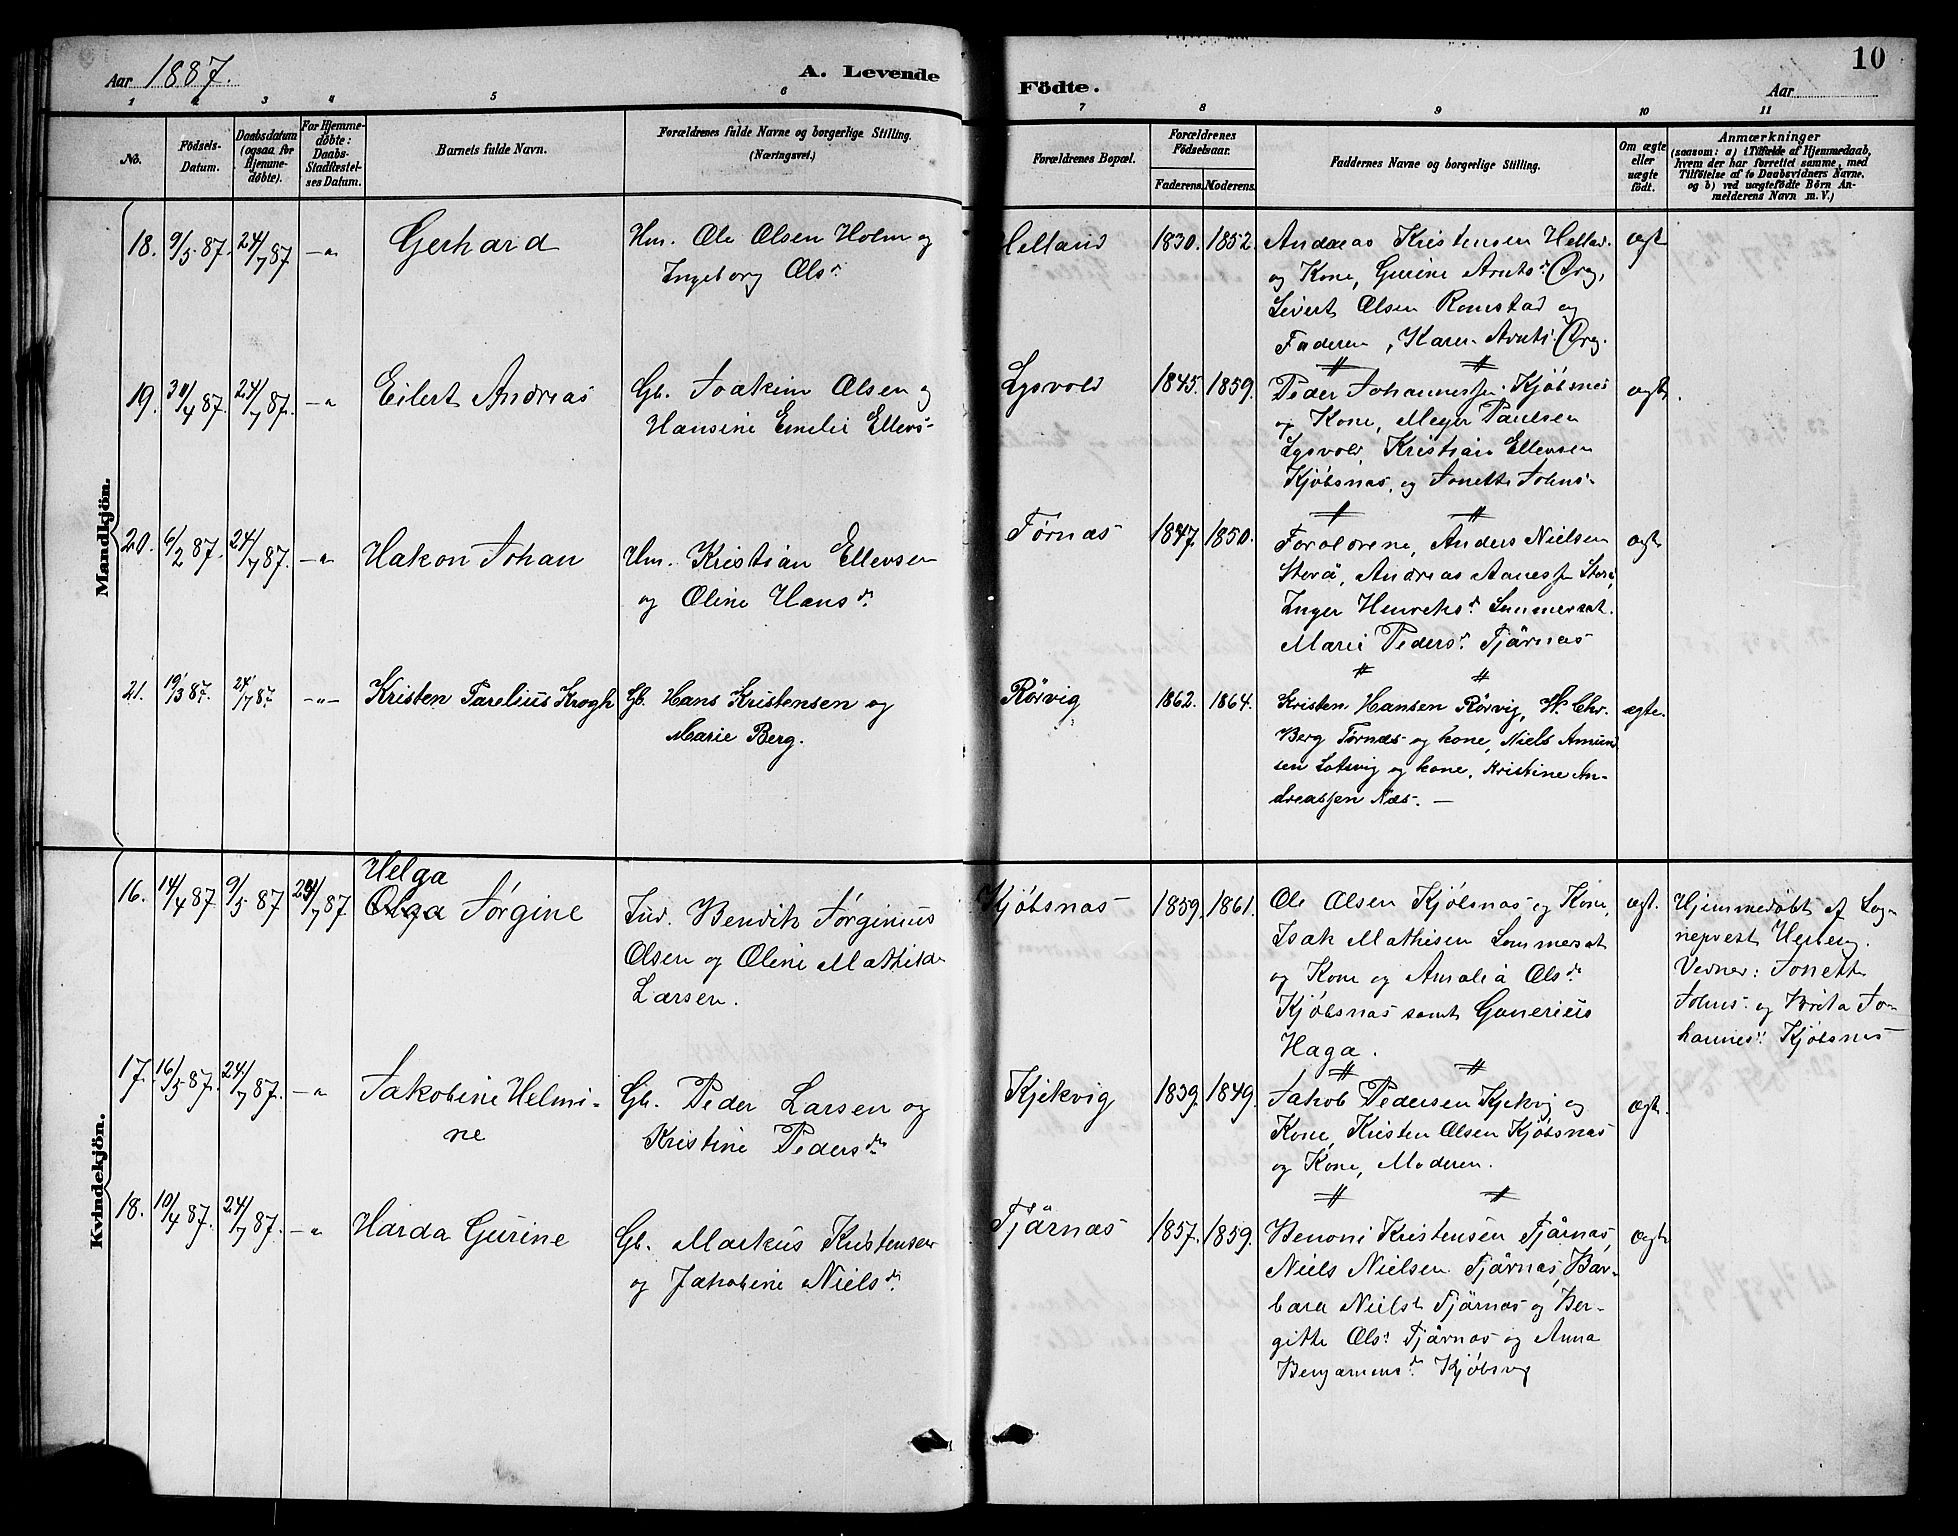 Aar 1887.
A. Levende
Födte.
Aar
10
1 2 3 4 5 6 7 8 9 10 11
No.
Födsels-
Datum.
Daabsdatum
(ogsaa for
Hjemme-
døbte).
For Hjemme-
døbte:
Daabs-
Stadfæstel-
ses Datum.
Barnets fulde Navn.
Forældrenes fulde Navne og borgerlige Stilling.
(Næringsvei.)
Forældrenes Bopæl.
Forældrenes
Fødselsaar.
Faderens. Moderens.
Faddernes Navne og borgerlige Stilling.
Om ægte
eller
uægte
født.
Anmærkninger
(saasom: a) i Tilfælde af Hjemmedaab,
hvem der har forrettet samme, med
Tilföielse af to Daabsvidners Navne.
og b) ved uægtefödte Börn An-
melderens Navn m. V.)
Mandkjön.
18. 9/5 87. 24/7 87 -"- Gerhard
Hm. Ole Olsen Holm og
Ingeborg Olsdr
Helland 1830. 1852.
Andreas Kristensen Hellad.
og Kone, Gurine Arntsdr Örg,
Sivert Olsen Romstad og
Faderen, Karen Arnts. Örg.
ægt
19. 30/4 87. 24/7 87. -"- Eilert Andreas
Gb. Joakim Olsen og
Hansine Emelie Ellevs-
Lysvold 1845. 1859.
Peder Johannessen Kjöbsnes
og Kone, Meyer Paulsen
Lysvold, Kristian Ellevsen
Kjöbsnas, og Jonette Johns-
ægt.
20. 6/2 87. 24/7 87. -"- Hakon Johan
Hm. Kristian Ellevsen
og Oline Hansdr.
Tørnæs 1847. 1850.
Forældrene, Anders Nielsen
Storå, Andreas Aanessen Storå,
Inger Henriksdr Sommersæt.
Marie Pedersdr. Tjärnæs
ægt
21. 19/3 87. 24/7 87. -"- Kristen Parelius Krogh
Gb. Hans Kristensen og
Marie Berg.
Rørvig 1862. 1864.
Kristen Hansen Rørvig, H. Chr.
Berg Tørnæs og kone, Niels Amund
sen Lotsvig og kone, Kristine An-
dreassen Næs. —
ægte.
Kvindekjön.
16. 14/4 87 9/5 87 24/7 87. Helga
Olga Jörgine
Ind. Bendik Jörginius
Olsen og Oline Mathilde
Larsen.
Kjöbsnas 1859. 1861.
Ole Olsen Kjöbsnas og Kone,
Isak Mathisen Sommersæt
og Kone og Amalia Olsdr
Kjöbsnas samt Gunerius
Haga.
ægt.
Hjemmedöbt af Sog-
nepræst
Vidner: Jonette
Johns. og Berta Jo-
hannesd. Kjöbsnes
17. 16/5 87. 24/7 87. -"- Jakobine Helmi-
ne
Gb. Peder Larsen og
Kristine Pedersdr
Kjekvig 1839. 1849.
Jakob Pedersen Kjekvig og
Kone, Kristen Olsen Kjöbsnas
og Kone, Moderen.
ægt.
18. 10/4 87. 24/7 87. -"- Harda Gurine
Gb. Markus Kristensen
og Jakobine Nielsdr
Tjärnas 1857. 1859.
Benoni Kristensen Tjärnas,
Niels Nielsen Tjärnas, Bar-
bara Nielsd Tjärnas og Ber-
gitte Olsd Tjärnas og Anna
Benjaminsdr. Kjöbsvig
ægt